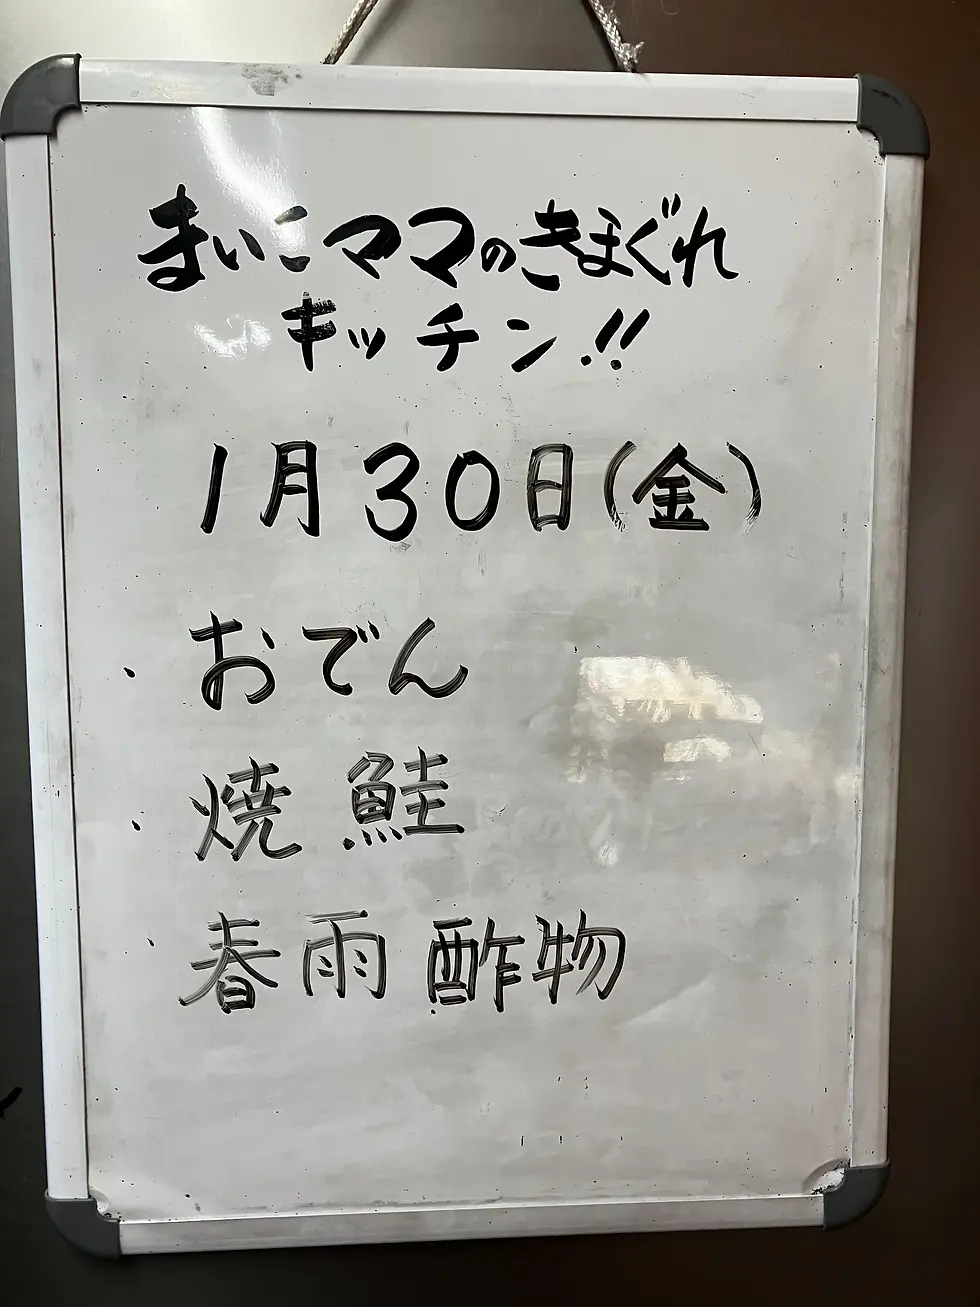 まいこママのきまぐれ
キッチン!!
1月30日(金)
・おでん
・焼鮭
・春雨酢物